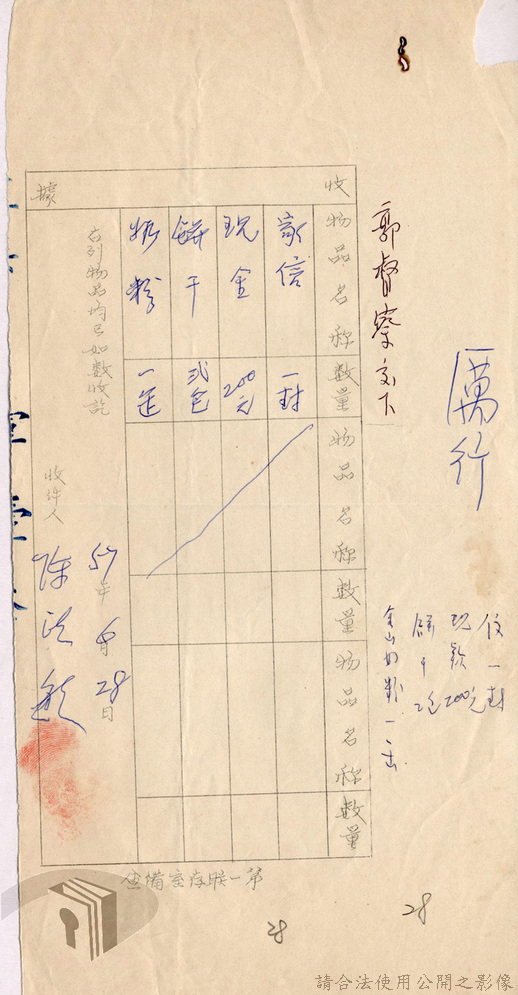 厲行
信一封
現款200元
餅干2包
金山奶粉一缶
郭督察交下
收據
物品名称 數量 物品名称 數量 物品名称 數量
家信 一封
現金 200元
餅干 弍包
奶粉 一缶
右列物品均已如數收訖
57年6月28日
收件人
第一聯存室備查
28
28
請合法使用公開之影像